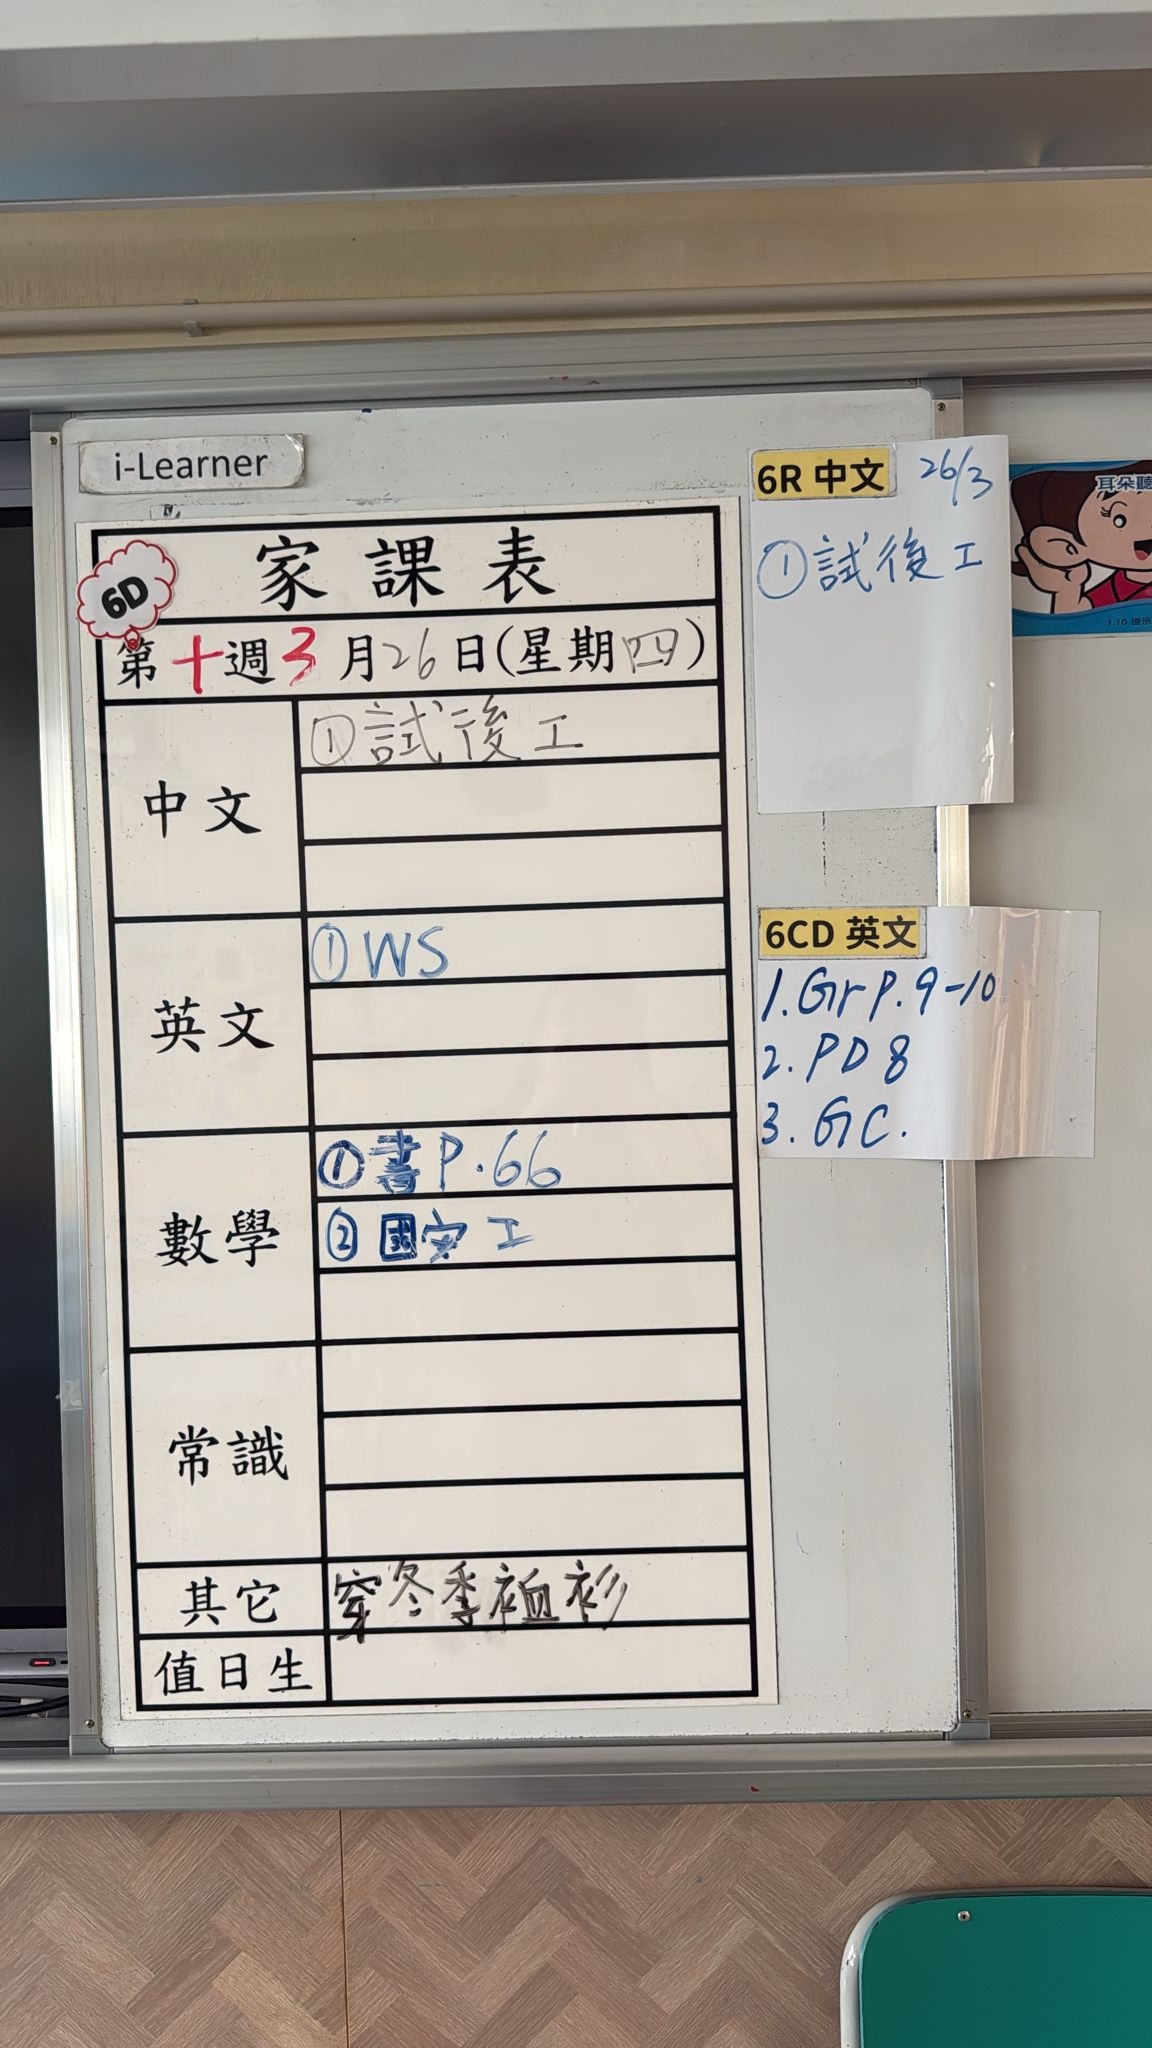 i-Learner
6D
家課表
第十週3月26日(星期四)
中文
①試後工
英文
①WS
數學
①書P.66
②國安工
常識
其它
穿冬季裇衫
值日生
6R 中文 26/3
①試後工
6CD 英文
1. Gr P. 9-10
2. PD 8
3. GC.
耳朵聽
1.10 提示